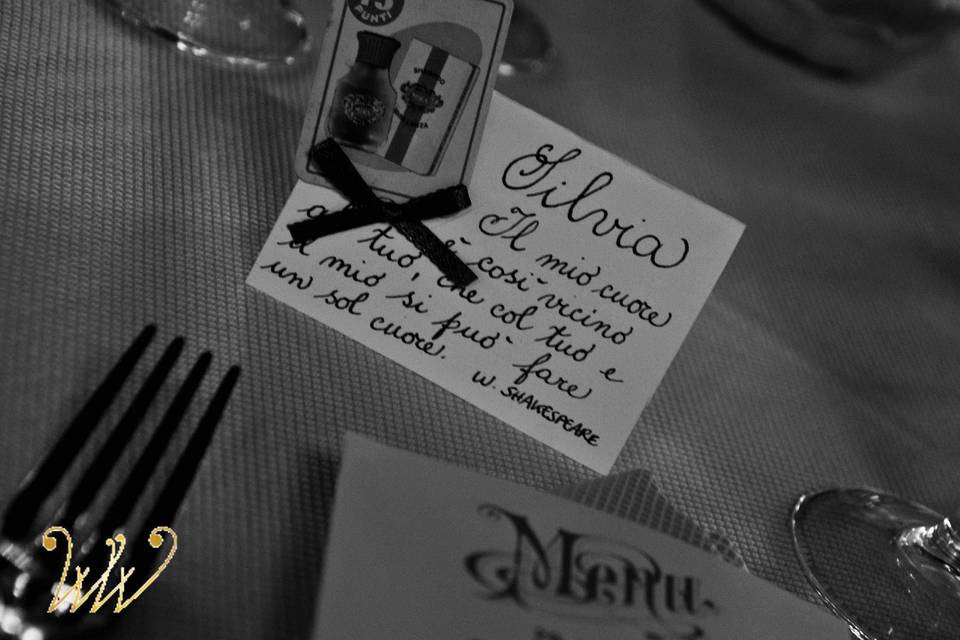 PUNTI
Silvia
Il mio cuore
è così vicino
tuo, che col tuo e
il mio si può fare
un sol cuore.
W. SHAKESPEARE
Menu.
WW